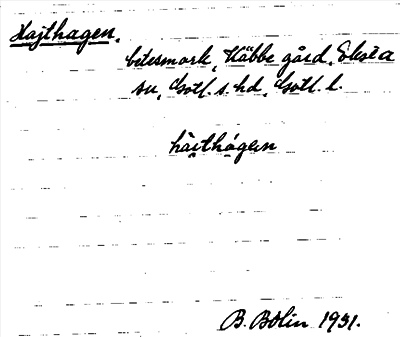 Hajthagen.
betesmark, Käbbe gård, Eksta
sn, Gotl. s. hd, Gotl. l.
hàithágen
B. Bolin 1931.